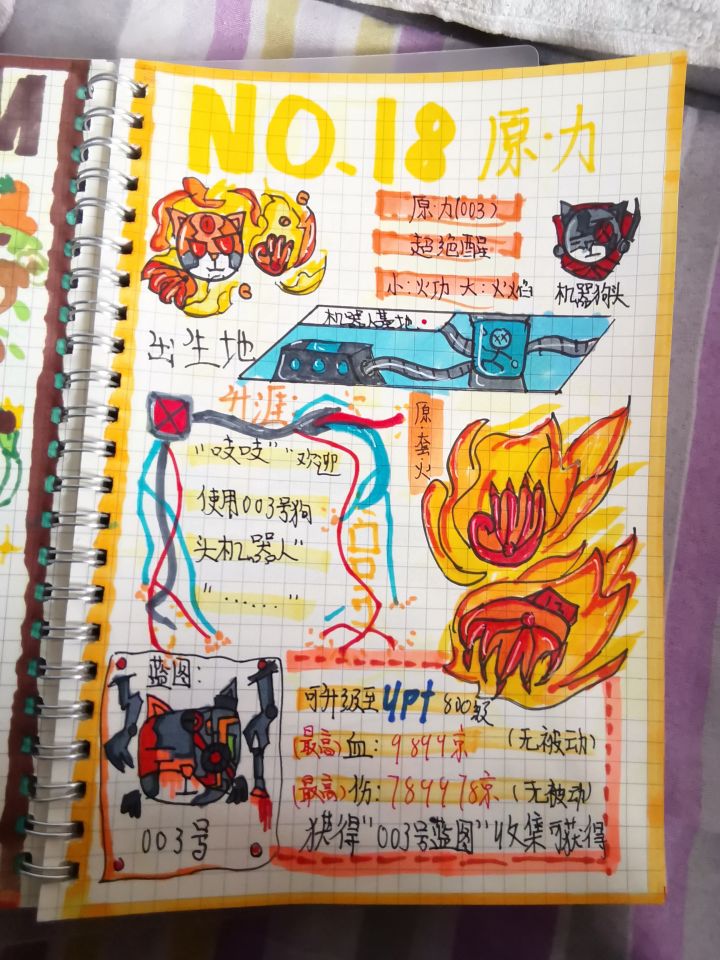 NO.18 原·力
原·力(003)
超绝醒
小:火功 大:火焰
机器狗头
机器人基地
出生地
原·奎·火
"吱吱" "欢迎
使用003号狗
头机器人"
"......"
蓝图:
003号
可升级至 ypt 800级
(最高)血: 9899京 (无被动)
(最高)伤: 789978京 (无被动)
获得"003号蓝图"收集可获得